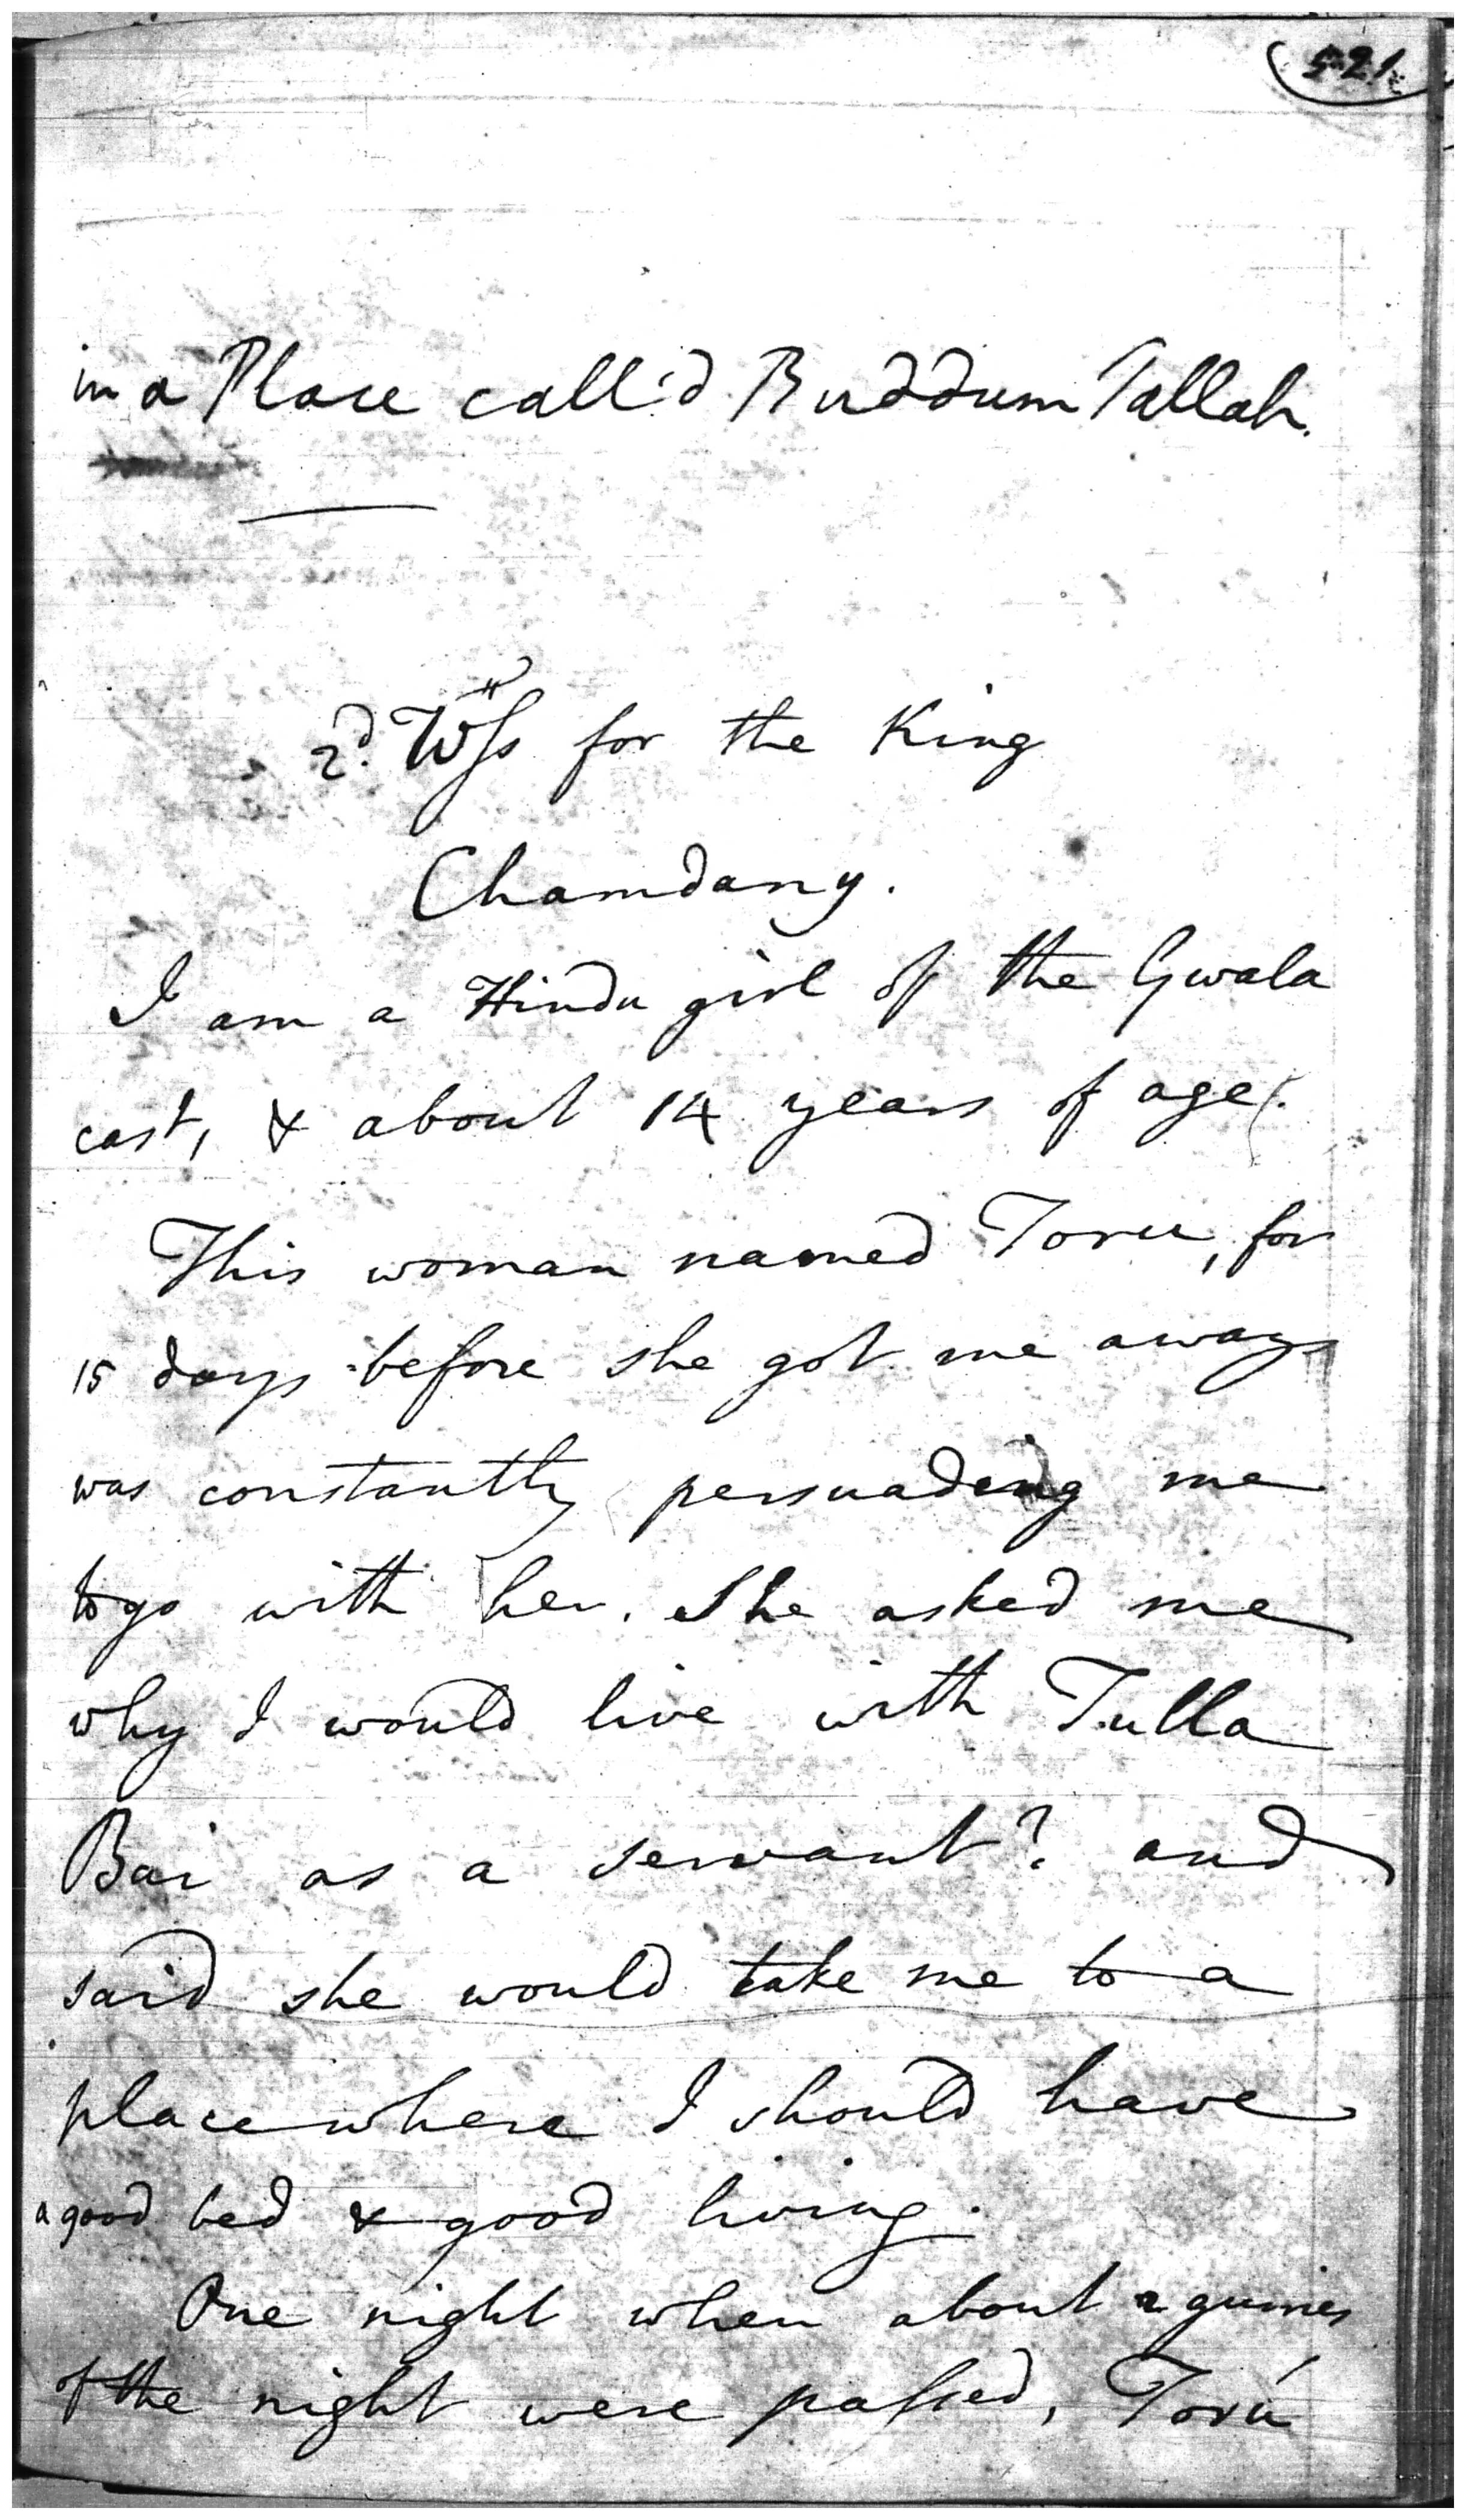 521
in a Place call'd Buddum Tallah.
2d. Wss for the King
Chamdany.
I am a Hindu girl of the Gwala
cast, & about 14 years of age.
This woman named Toru, for
15 days before she got me away
was constantly persuading me
to go with her. She asked me
why I would live with Tulla
Bai as a servant? and
said she would take me to a
place where I should have
a good bed & good living.
One night when about 2 gurries
of the night were passed, Torú